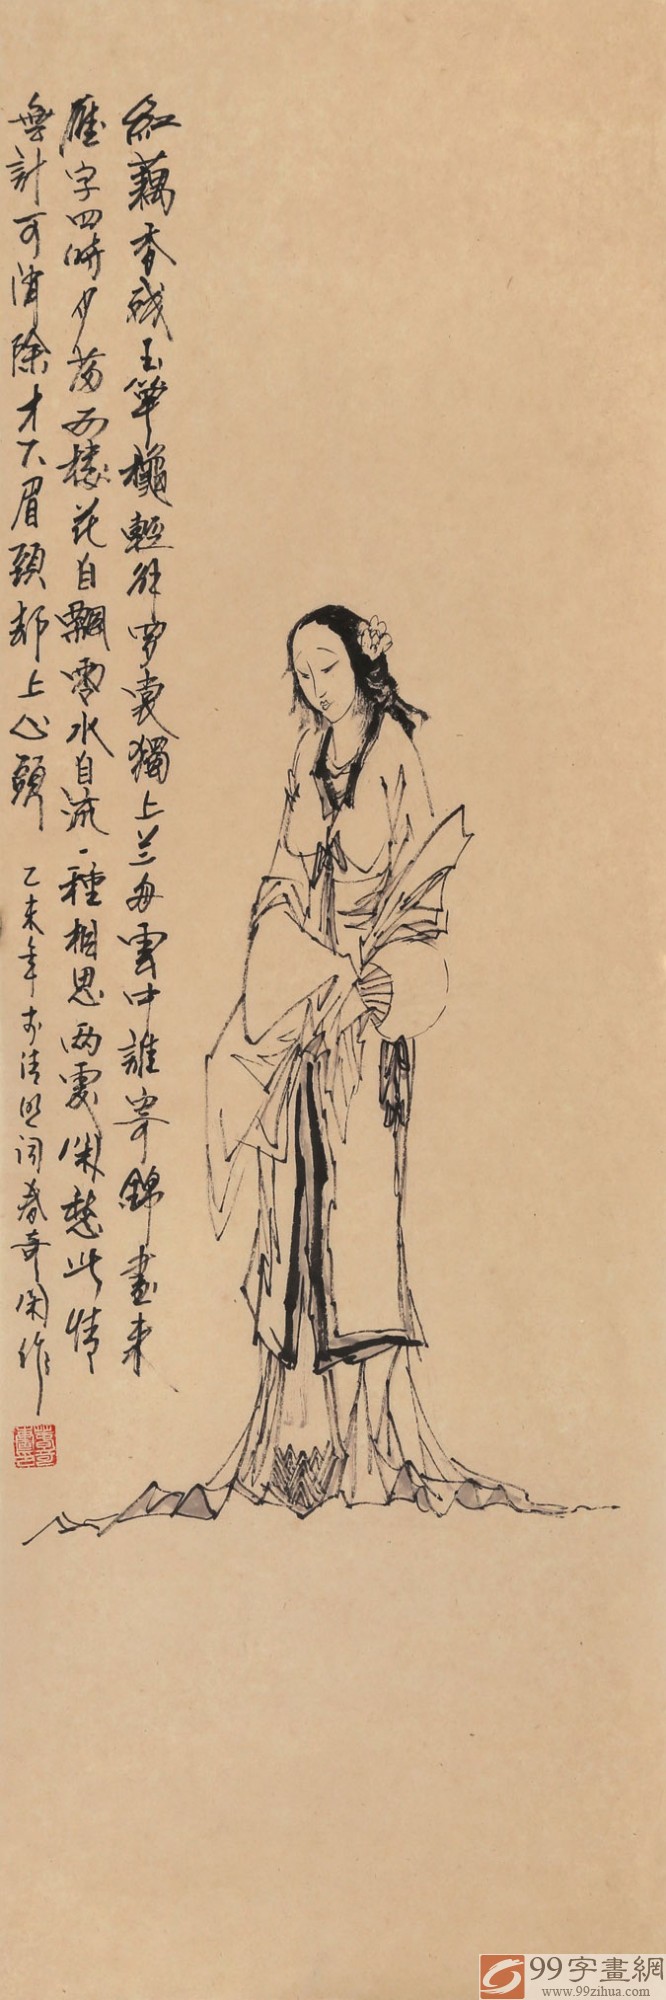 紅藕香殘玉簟秋輕解羅裳獨上兰舟雲中誰寄錦書來
雁字回時月满西樓花自飄零水自流一種相思兩處閑愁此情
無計可消除才下眉頭却上心頭
乙未年 清明 春奇 作
99字畫網
www.99zihua.com